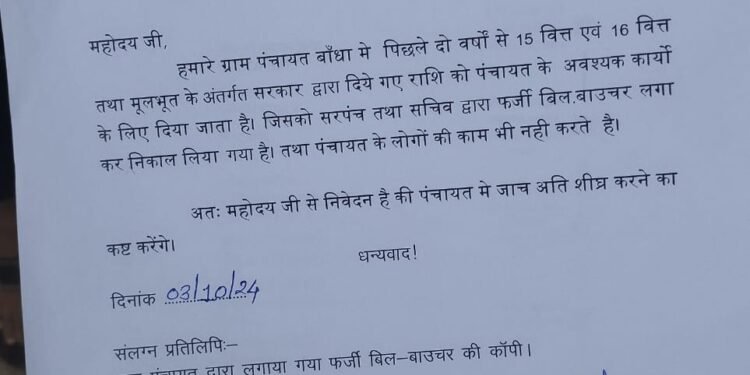 महोदय जी,
हमारे ग्राम पंचायत बाँधा मे पिछले दो वर्षों से 15 वित्त एवं 16 वित्त
तथा मूलभूत के अंतर्गत सरकार द्वारा दिये गए राशि को पंचायत के अवश्यक कार्यो
के लिए दिया जाता है। जिसको सरपंच तथा सचिव द्वारा फर्जी बिल.बाउचर लगा
कर निकाल लिया गया है। तथा पंचायत के लोगों की काम भी नही करते है।
अतः महोदय जी से निवेदन है की पंचायत मे जाच अति शीघ्र करने का
कष्ट करेंगे।
धन्यवाद!
दिनांक 03/10/24
संलग्न प्रतिलिपिः–
पंचायत द्वारा लगाया गया फर्जी बिल–बाउचर की कॉपी।